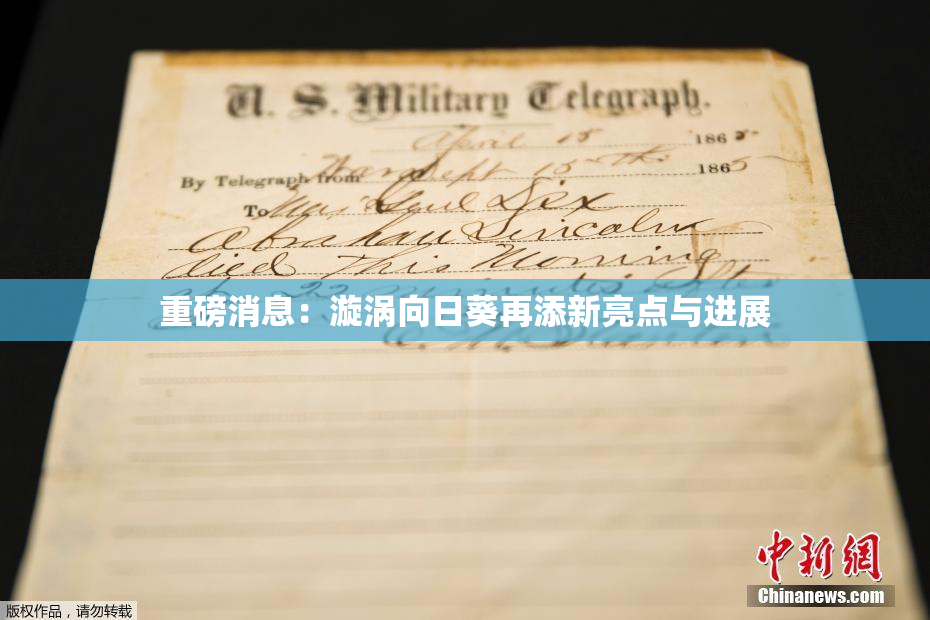 U. S. Military Telegraph.
April 15 1865
By Telegraph from War Dept 15th 1865
To Maj Genl Dix
Abraham Lincoln
died This Morning
at 22 minutes after
重磅消息：漩涡向日葵再添新亮点与进展
E. M. Stanton
中新网
Chinanews.com
版权作品，请勿转载